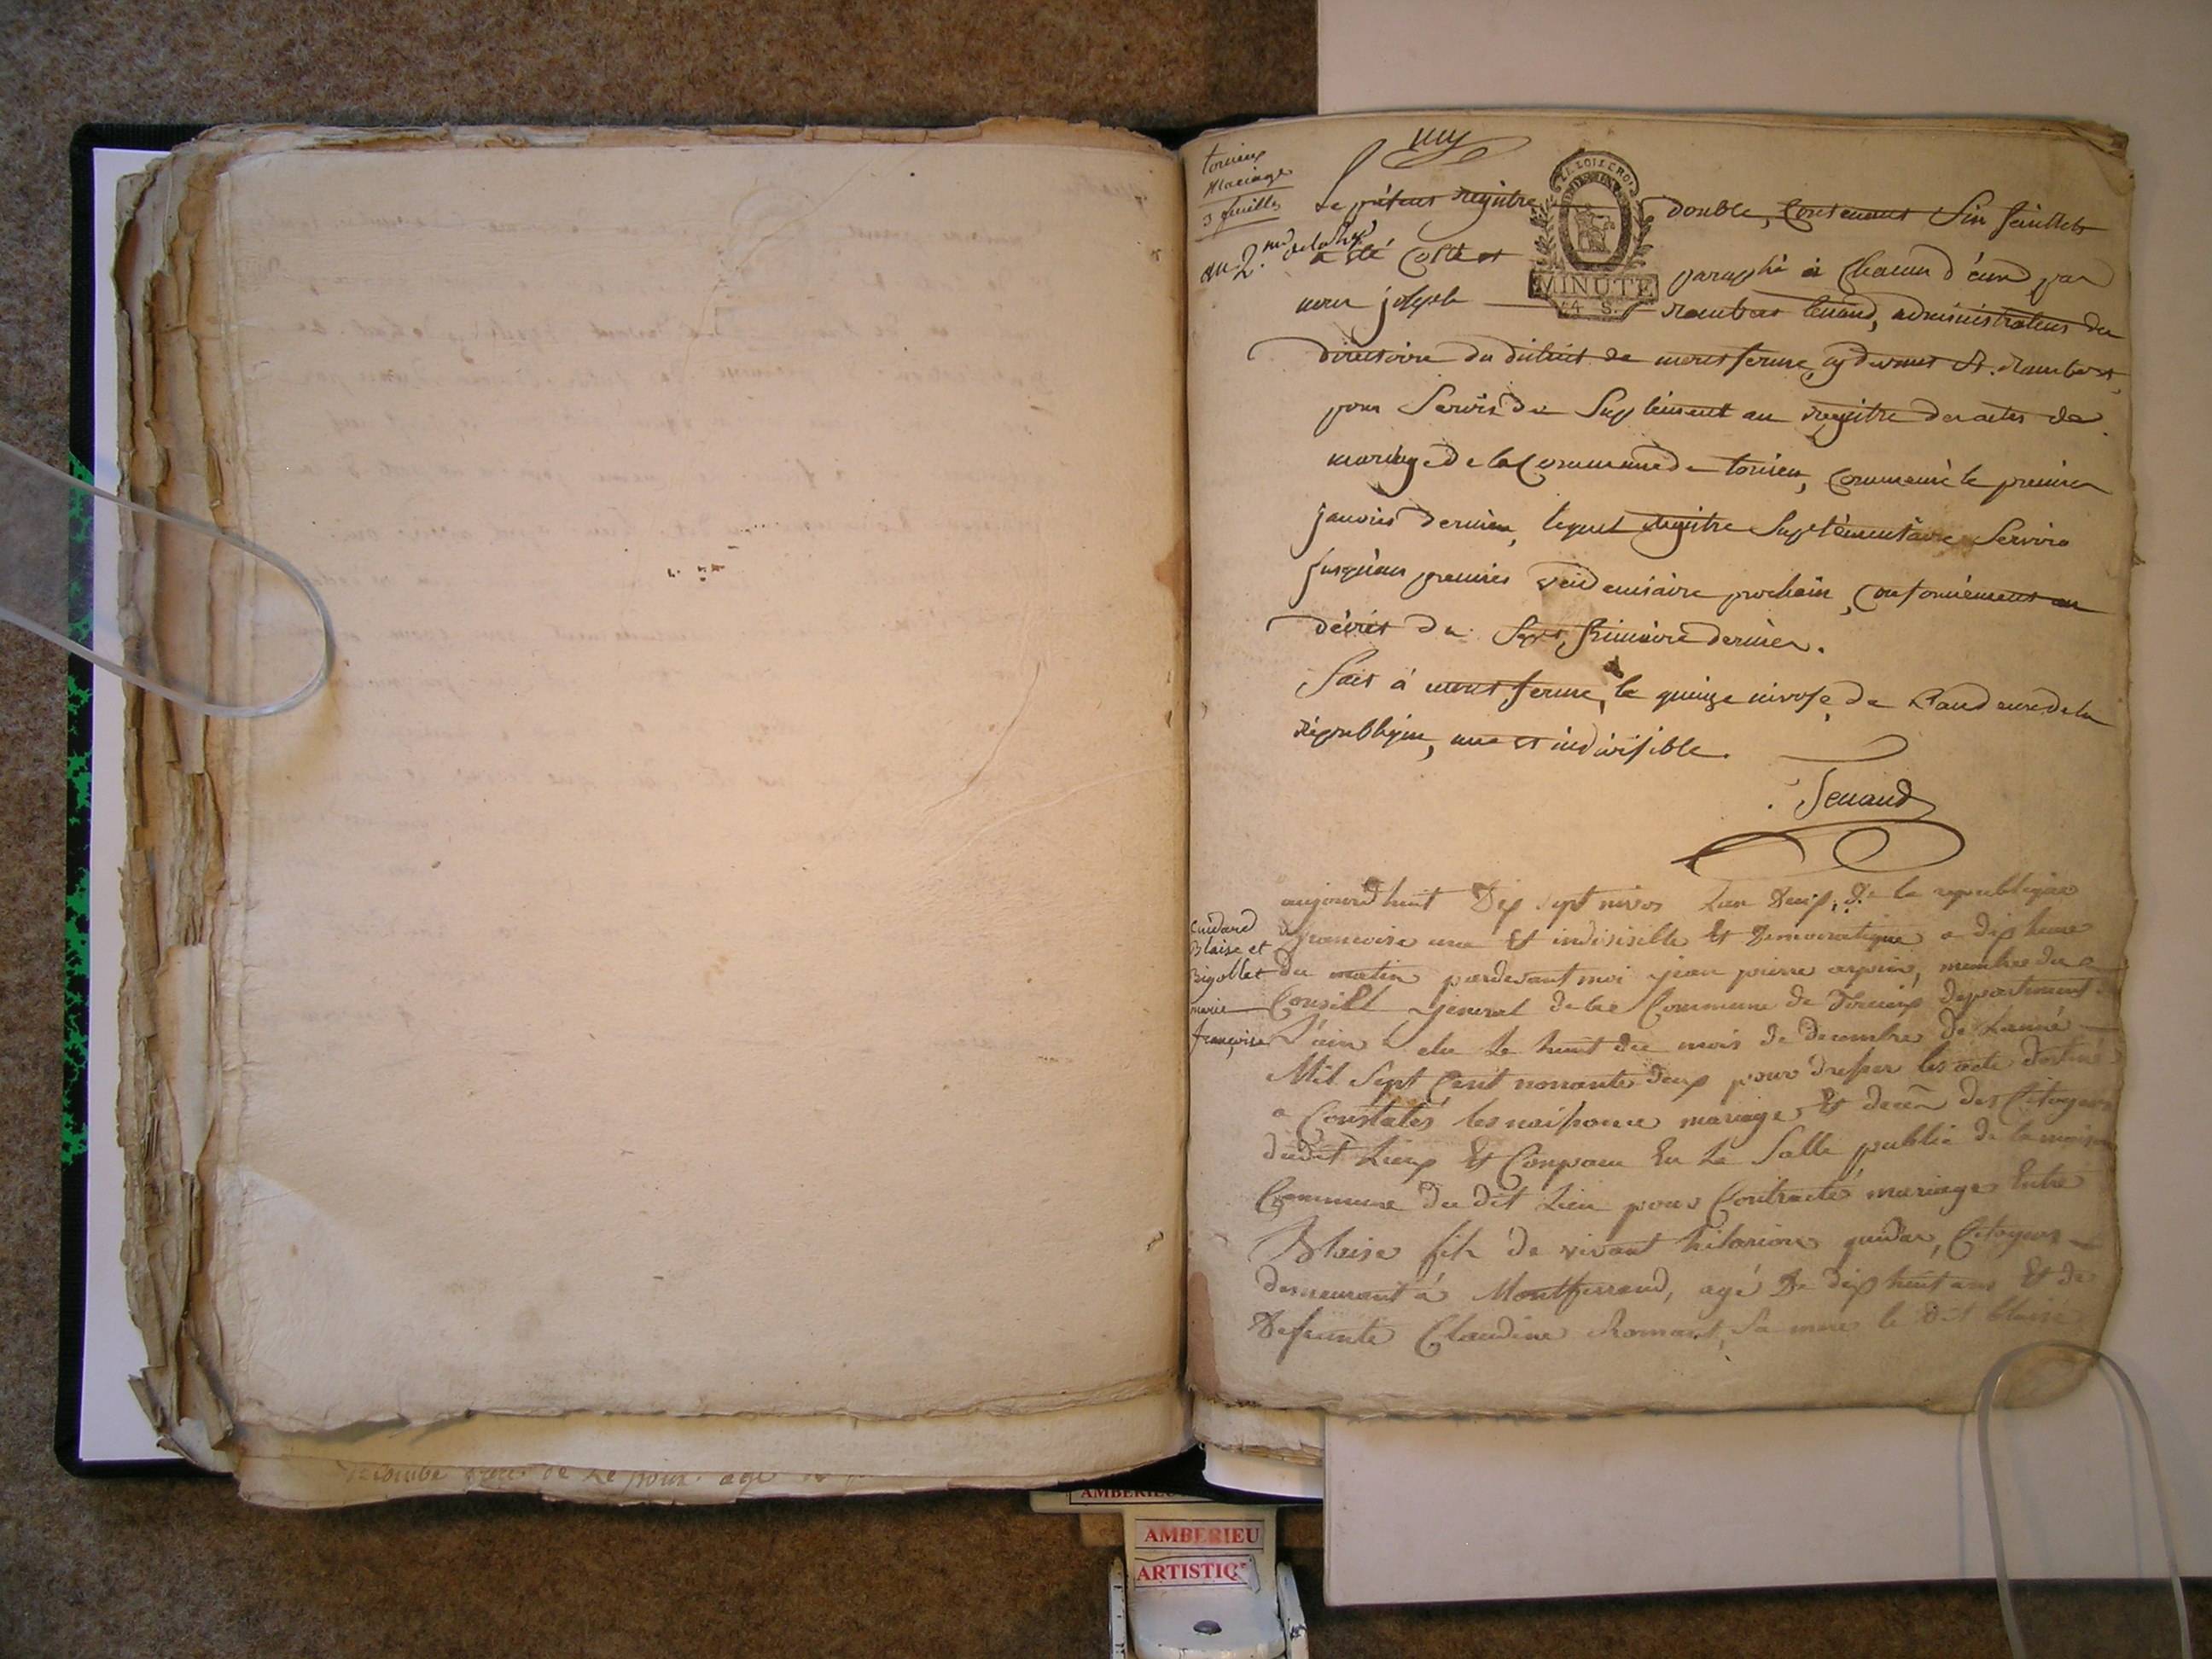 torcieux
Mariage
3 feuilles
an 2.me de la Rq
LA LOI LE ROI
MINUTE
4 S.
Le présent registre double, contenant six feuillets
a été cotté et paraphé à chacun d'eux par
nous joseph rambert tenand, administrateur du
directoire du district de montferme, cy devant St. rambert,
pour servir de suplément au registre des actes de
mariage de la commune de torcieu, commencé le premier
janvier dernier, lequel registre suplémentaire servira
jusqu'au premier vendemiaire prochain, conformément au
décret du sept frimaire dernier.
fait à montferme, le quinze nivose, de l'an deux de la
République, une et indivisible.
Tenand
aujourdhuit dix sept nivos Lan deux, de la republique
francoise une et indivisible et democratique a dix heure
du matin pardevant moi jean pierre arpin, membre du
Conseill general de la Commune de Torcieux departement
L'ain elu le huit du mois de decembre de Lanné
Mil sept Cent nonante deux pour dresser les acte destiné
a Constatés les naissance mariage et decen des Citoyens
dudit Lieux et Conparu en La Salle publie de la maison
Commune du dit Lieu pour Contracté mariage Entre
Blaise fils de vivant hilarion guidar, Citoyens
demeurant à Montferrand, agé de dix huit ans Et de
defeunte Claudine Romant, sa mere le dit blaise
cuidard
Blaise et
Bigollet
marie
françoise
AMBERIEU
AMBERIEU
ARTISTIQ